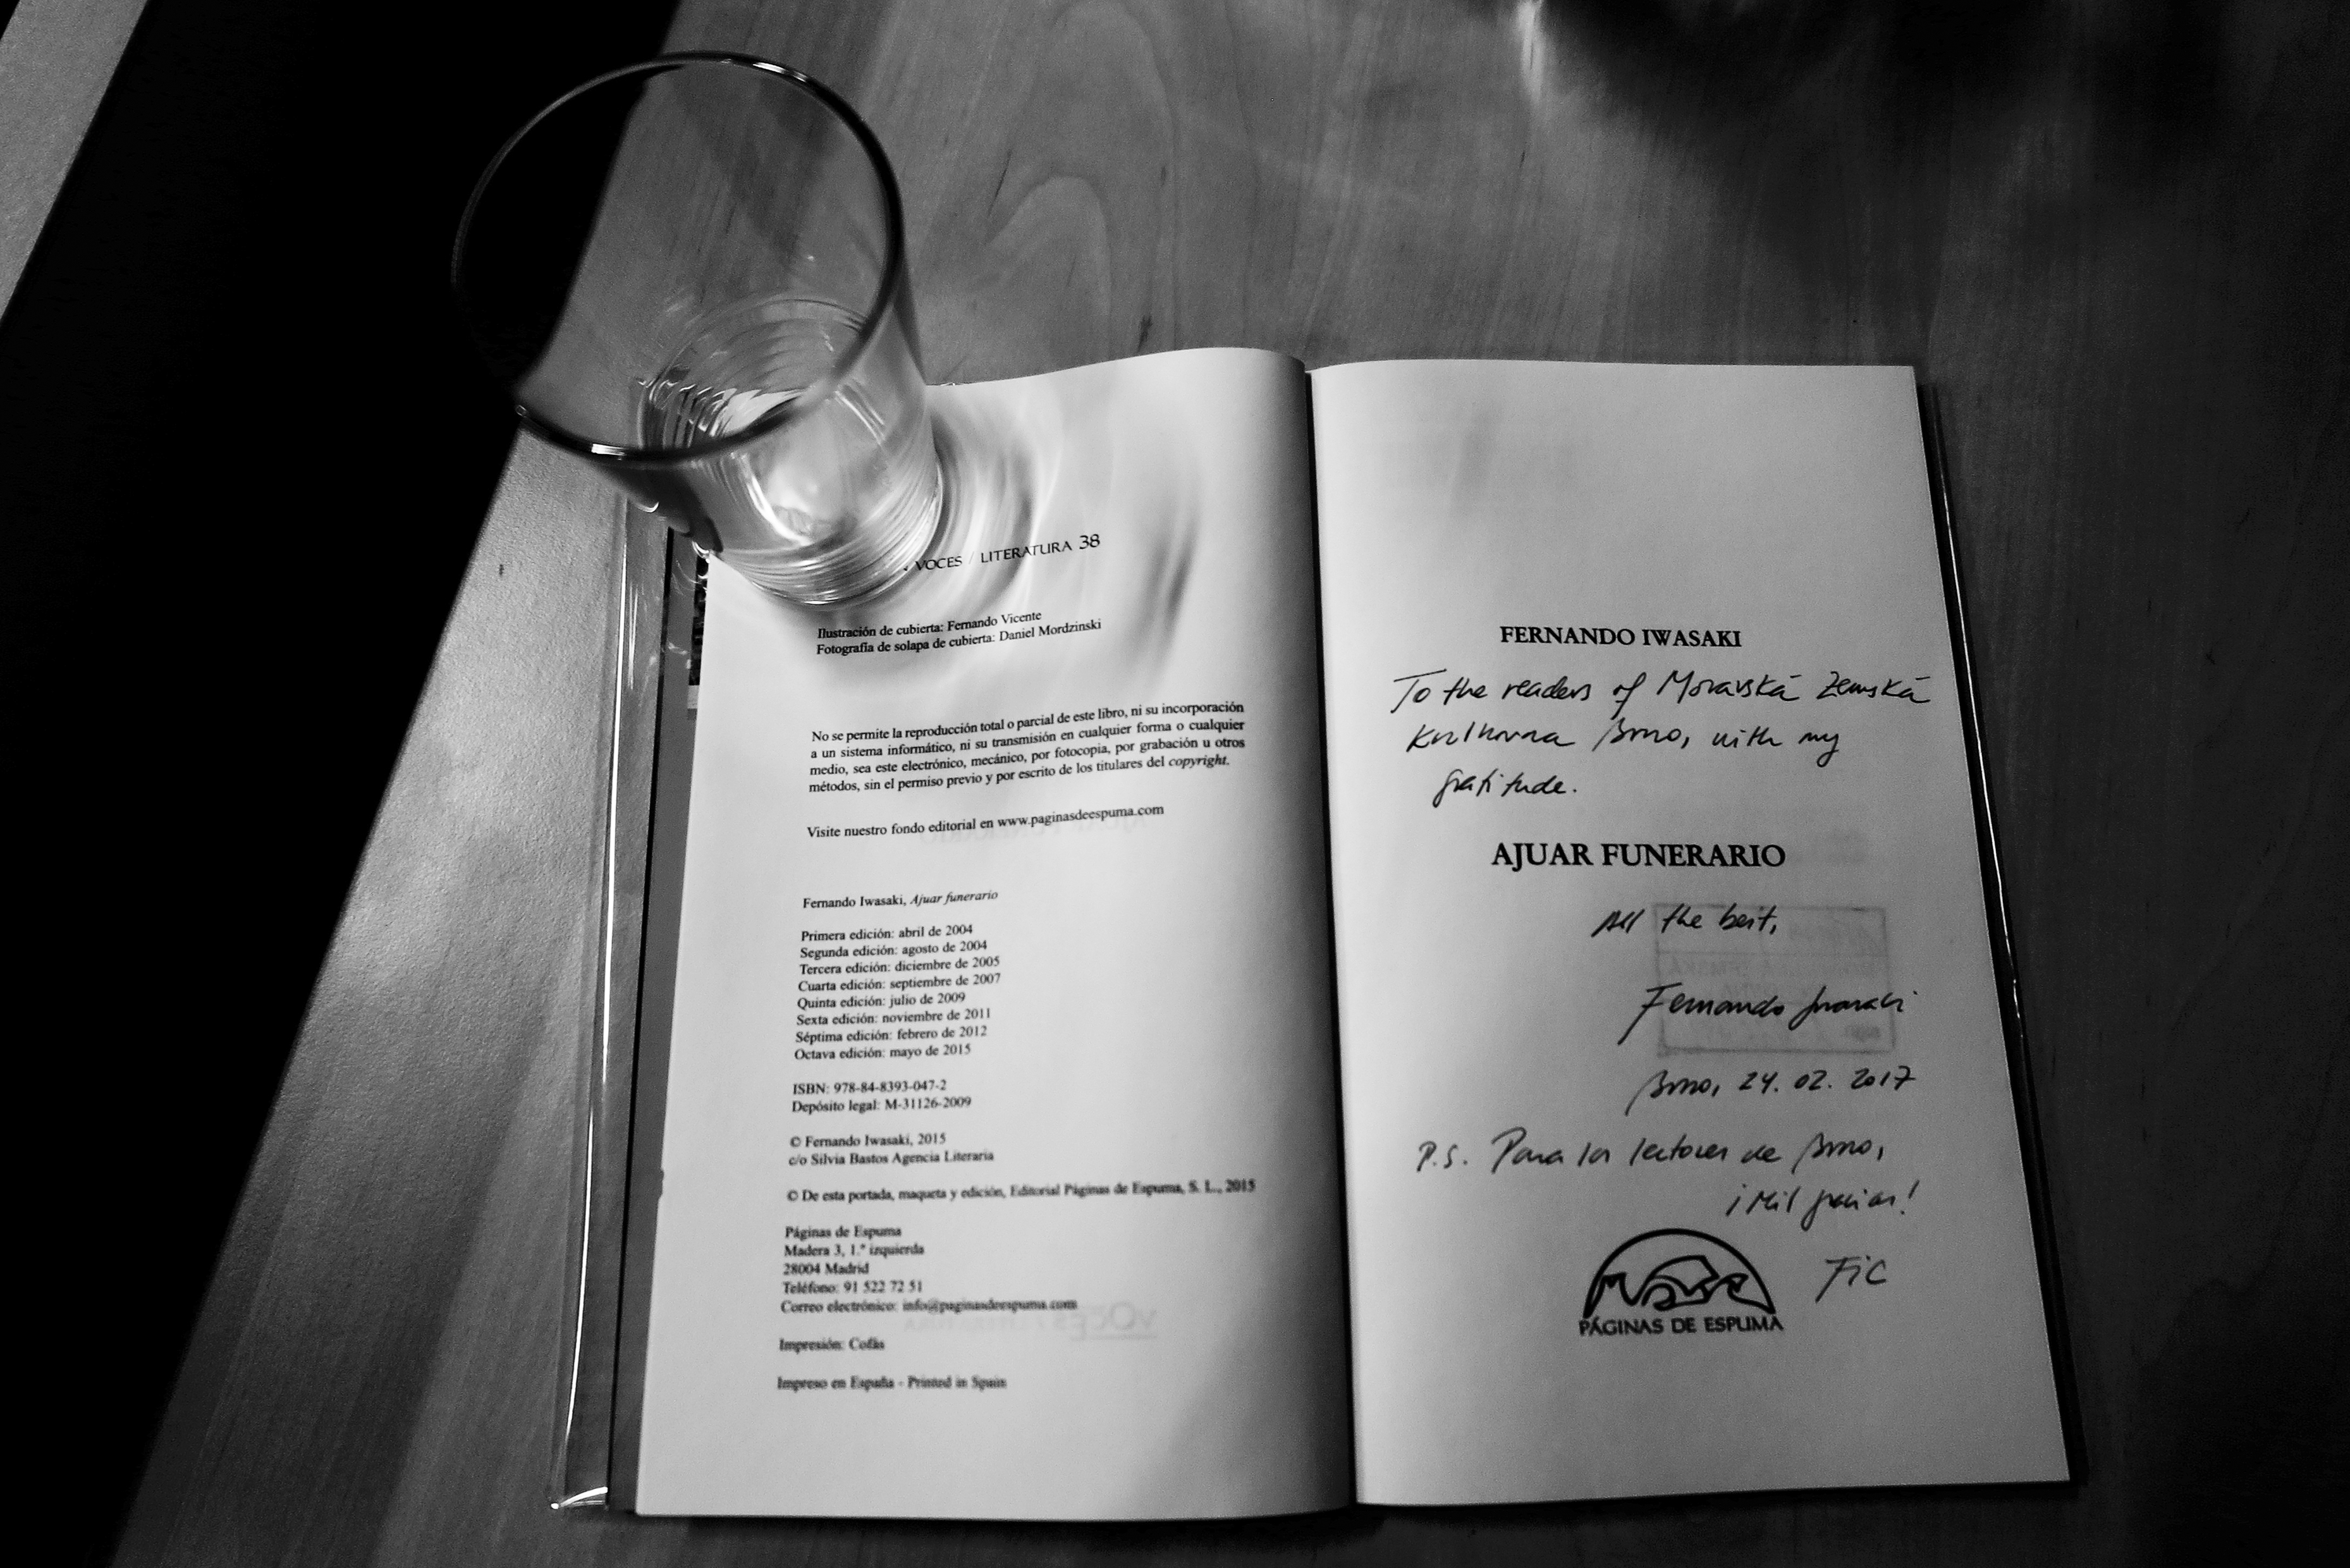 VOCES / LITERATURA 38
Ilustración de cubierta: Fernando Vicente
Fotografía de solapa de cubierta: Daniel Mordzinski
No se permite la reproducción total o parcial de este libro, ni su incorporación
a un sistema informático, ni su transmisión en cualquier forma o cualquier
medio, sea este electrónico, mecánico, por fotocopia, por grabación u otros
métodos, sin el permiso previo y por escrito de los titulares del copyright.
Visite nuestro fondo editorial en www.paginasdeespuma.com
Fernando Iwasaki, Ajuar funerario
Primera edición: abril de 2004
Segunda edición: agosto de 2004
Tercera edición: diciembre de 2005
Cuarta edición: septiembre de 2007
Quinta edición: julio de 2009
Sexta edición: noviembre de 2011
Séptima edición: febrero de 2012
Octava edición: mayo de 2015
ISBN: 978-84-8393-047-2
Depósito legal: M-31126-2009
© Fernando Iwasaki, 2015
c/o Silvia Bastos Agencia Literaria
© De esta portada, maqueta y edición, Editorial Páginas de Espuma, S. L., 2015
Páginas de Espuma
Madera 3, 1.º izquierda
28004 Madrid
Teléfono: 91 522 72 51
Correo electrónico: info@paginasdeespuma.com
Impresión: Cofás
Impreso en España - Printed in Spain
FERNANDO IWASAKI
To the readers of Moravská Zemská
Knihovna Brno, with my
gratitude.
AJUAR FUNERARIO
All the best,
Fernando Iwasaki
Brno, 24. 02. 2017
P.S. Para los lectores de Brno,
¡Mil gracias!
FIC
PÁGINAS DE ESPUMA